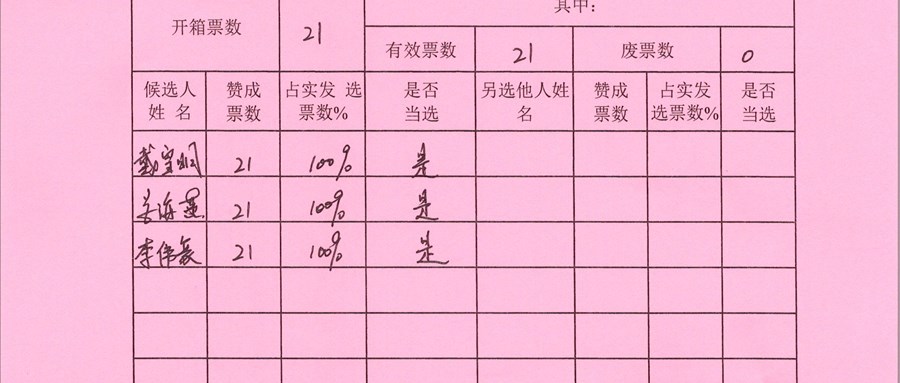 其中：
开箱票数 21
有效票数 21 废票数 0
候选人姓 名 赞成票数 占实发 选票数% 是否当选 另选他人姓名 赞成票数 占实发选票数% 是否当选
戴宝明 21 100% 是
海燕 21 100% 是
李伟 21 100% 是